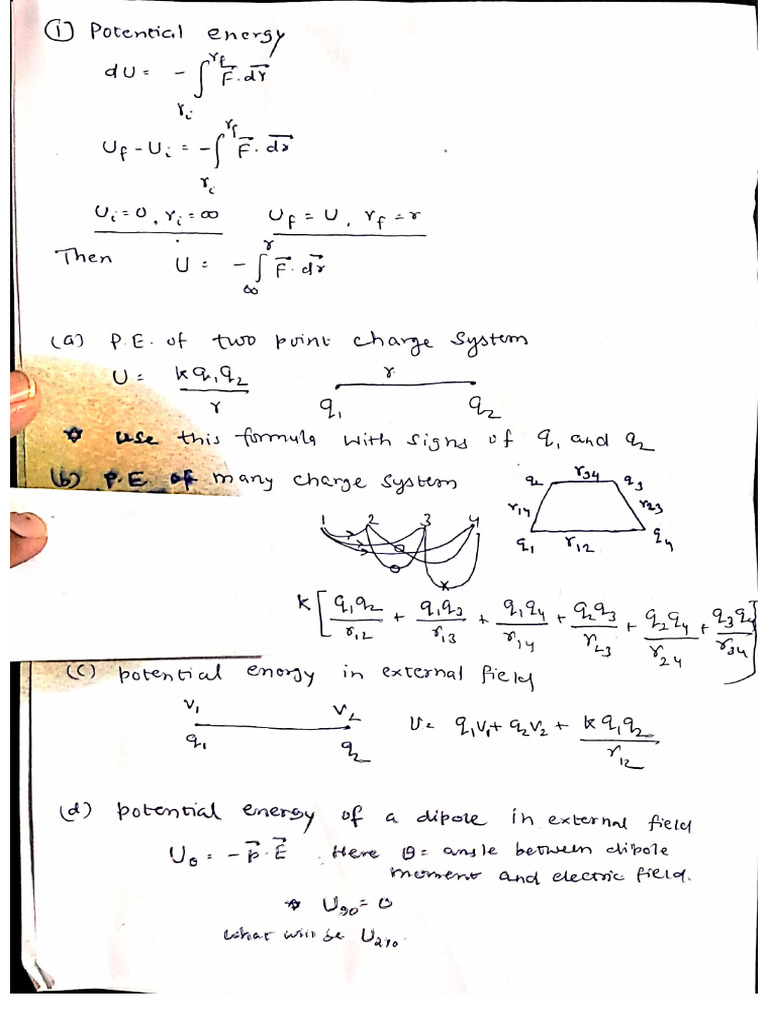 ① Potential energy
dU = - ∫_{r_i}^{r_f} F⃗.dr⃗
U_f - U_i = - ∫_{r_i}^{r_f} F⃗.dr⃗
U_i = 0, r_i = ∞    U_f = U, r_f = r
Then U = - ∫_{∞}^{r} F⃗.dr⃗
(a) P.E. of two point charge system
U = kq₁q₂/r
r
q₁ q₂
☆ use this formula with signs of q₁ and q₂
(b) P.E. of many charge system
1 2 3 4
q₂ r₃₄ q₃
r₁₄ r₂₃
q₁ r₁₂ q₄
k[q₁q₂/r₁₂ + q₁q₃/r₁₃ + q₁q₄/r₁₄ + q₂q₃/r₂₃ + q₂q₄/r₂₄ + q₃q₄/r₃₄]
(c) potential energy in external field
V₁ V₂
q₁ q₂
U = q₁V₁ + q₂V₂ + kq₁q₂/r₁₂
(d) potential energy of a dipole in external field
U_θ = -p⃗.E⃗. Here θ = angle between dipole
moment and electric field.
☆ U₉₀ = 0
what will be U₂₇₀.